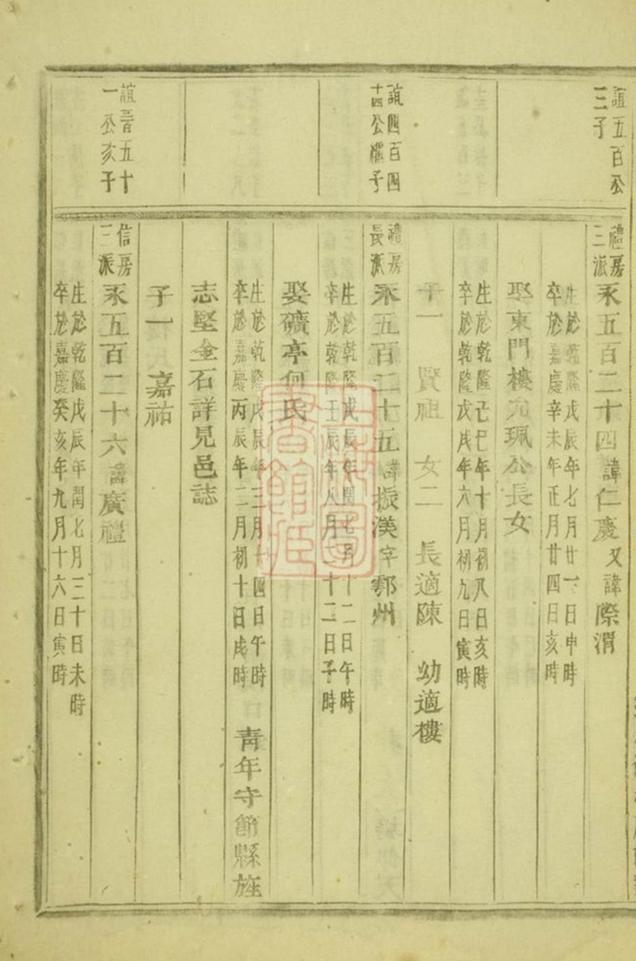 誼五百公
三子
禮房
三派
禾五百二十四諱仁慶又諱際渭
生於乾隆戊辰年七月廿一日申時
卒於嘉慶辛未年正月廿四日亥時
娶東門樓元珮公長女
生於乾隆己巳年十月初八日亥時
卒於乾隆戊戌年六月初九日寅時
子一 賢祖 女二 長適陳 幼適樓
誼四百四
十四公 子
禮房
長派
禾五百二十五諱振漢字鄴州
生於乾隆戊辰年閏七月十二日午時
卒於乾隆壬辰年八月十二日子時
娶礦亭何氏
生於乾隆戊辰年三月十四日午時
卒於嘉慶丙辰年二月初十日戌時
青年守節縣旌
志堅金石詳見邑誌
子一 嘉祐
誼晉五十
一公亥子
信房
三派
禾五百二十六諱廣禮
生於乾隆戊辰年閏七月三十日未時
卒於嘉慶癸亥年九月十六日寅時